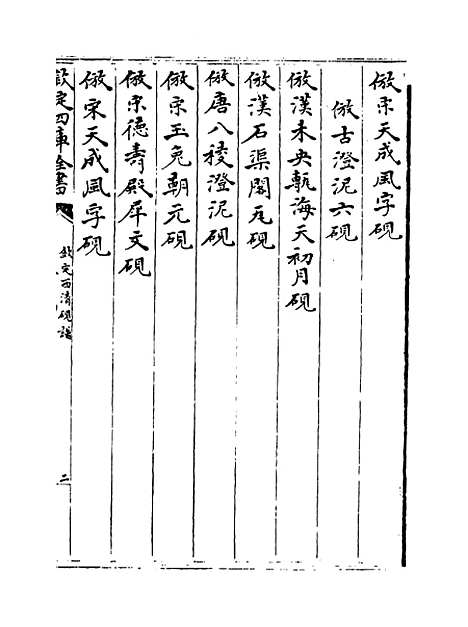 倣宋天成風字硯
倣古澄泥六硯
倣漢未央甎海天初月硯
倣漢石渠閣瓦硯
倣唐八稜澄泥硯
倣宋玉兔朝元硯
倣宋德壽殿犀文硯
倣宋天成風字硯
欽定四庫全書
欽定西清硯譜
二